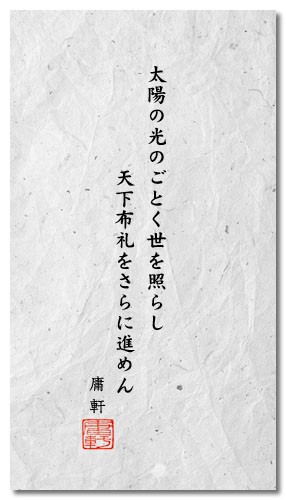 太陽の光のごとく世を照らし
天下布礼をさらに進めん
庸軒
庸軒